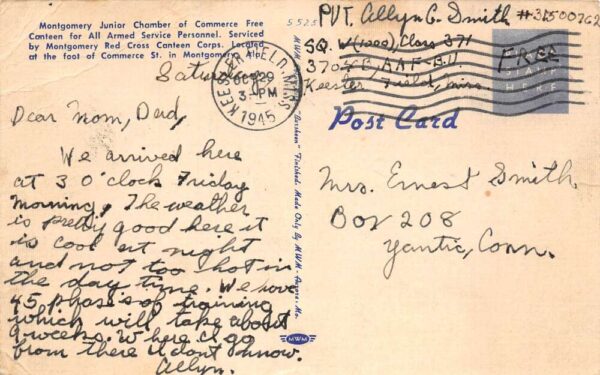 Montgomery Junior Chamber of Commerce Free
Canteen for All Armed Service Personnel. Serviced
by Montgomery Red Cross Canteen Corps. Located
at the foot of Commerce St. in Montgomery, Ala.
Saturday
Dear Mom, Dad,
We arrived here
at 3 O'clock Friday
Morning. The weather
is pretty good here it
is cool at night
and not too hot in
the day time. We have
45 phasis of training
which will take about
9 weeks. Where I go
from there I dont know.
Allyn.
KEESLER FIELD, MISS.
3 PM
1945
PVT. Allyn C. Smith
SQ. Class 371
3704 AAF-B.U.
Keesler Field, Miss.
FREE
STAMP
HERE
Post Card
Mrs. Ernest Smith
Box 208
Yantic, Conn.
MWM